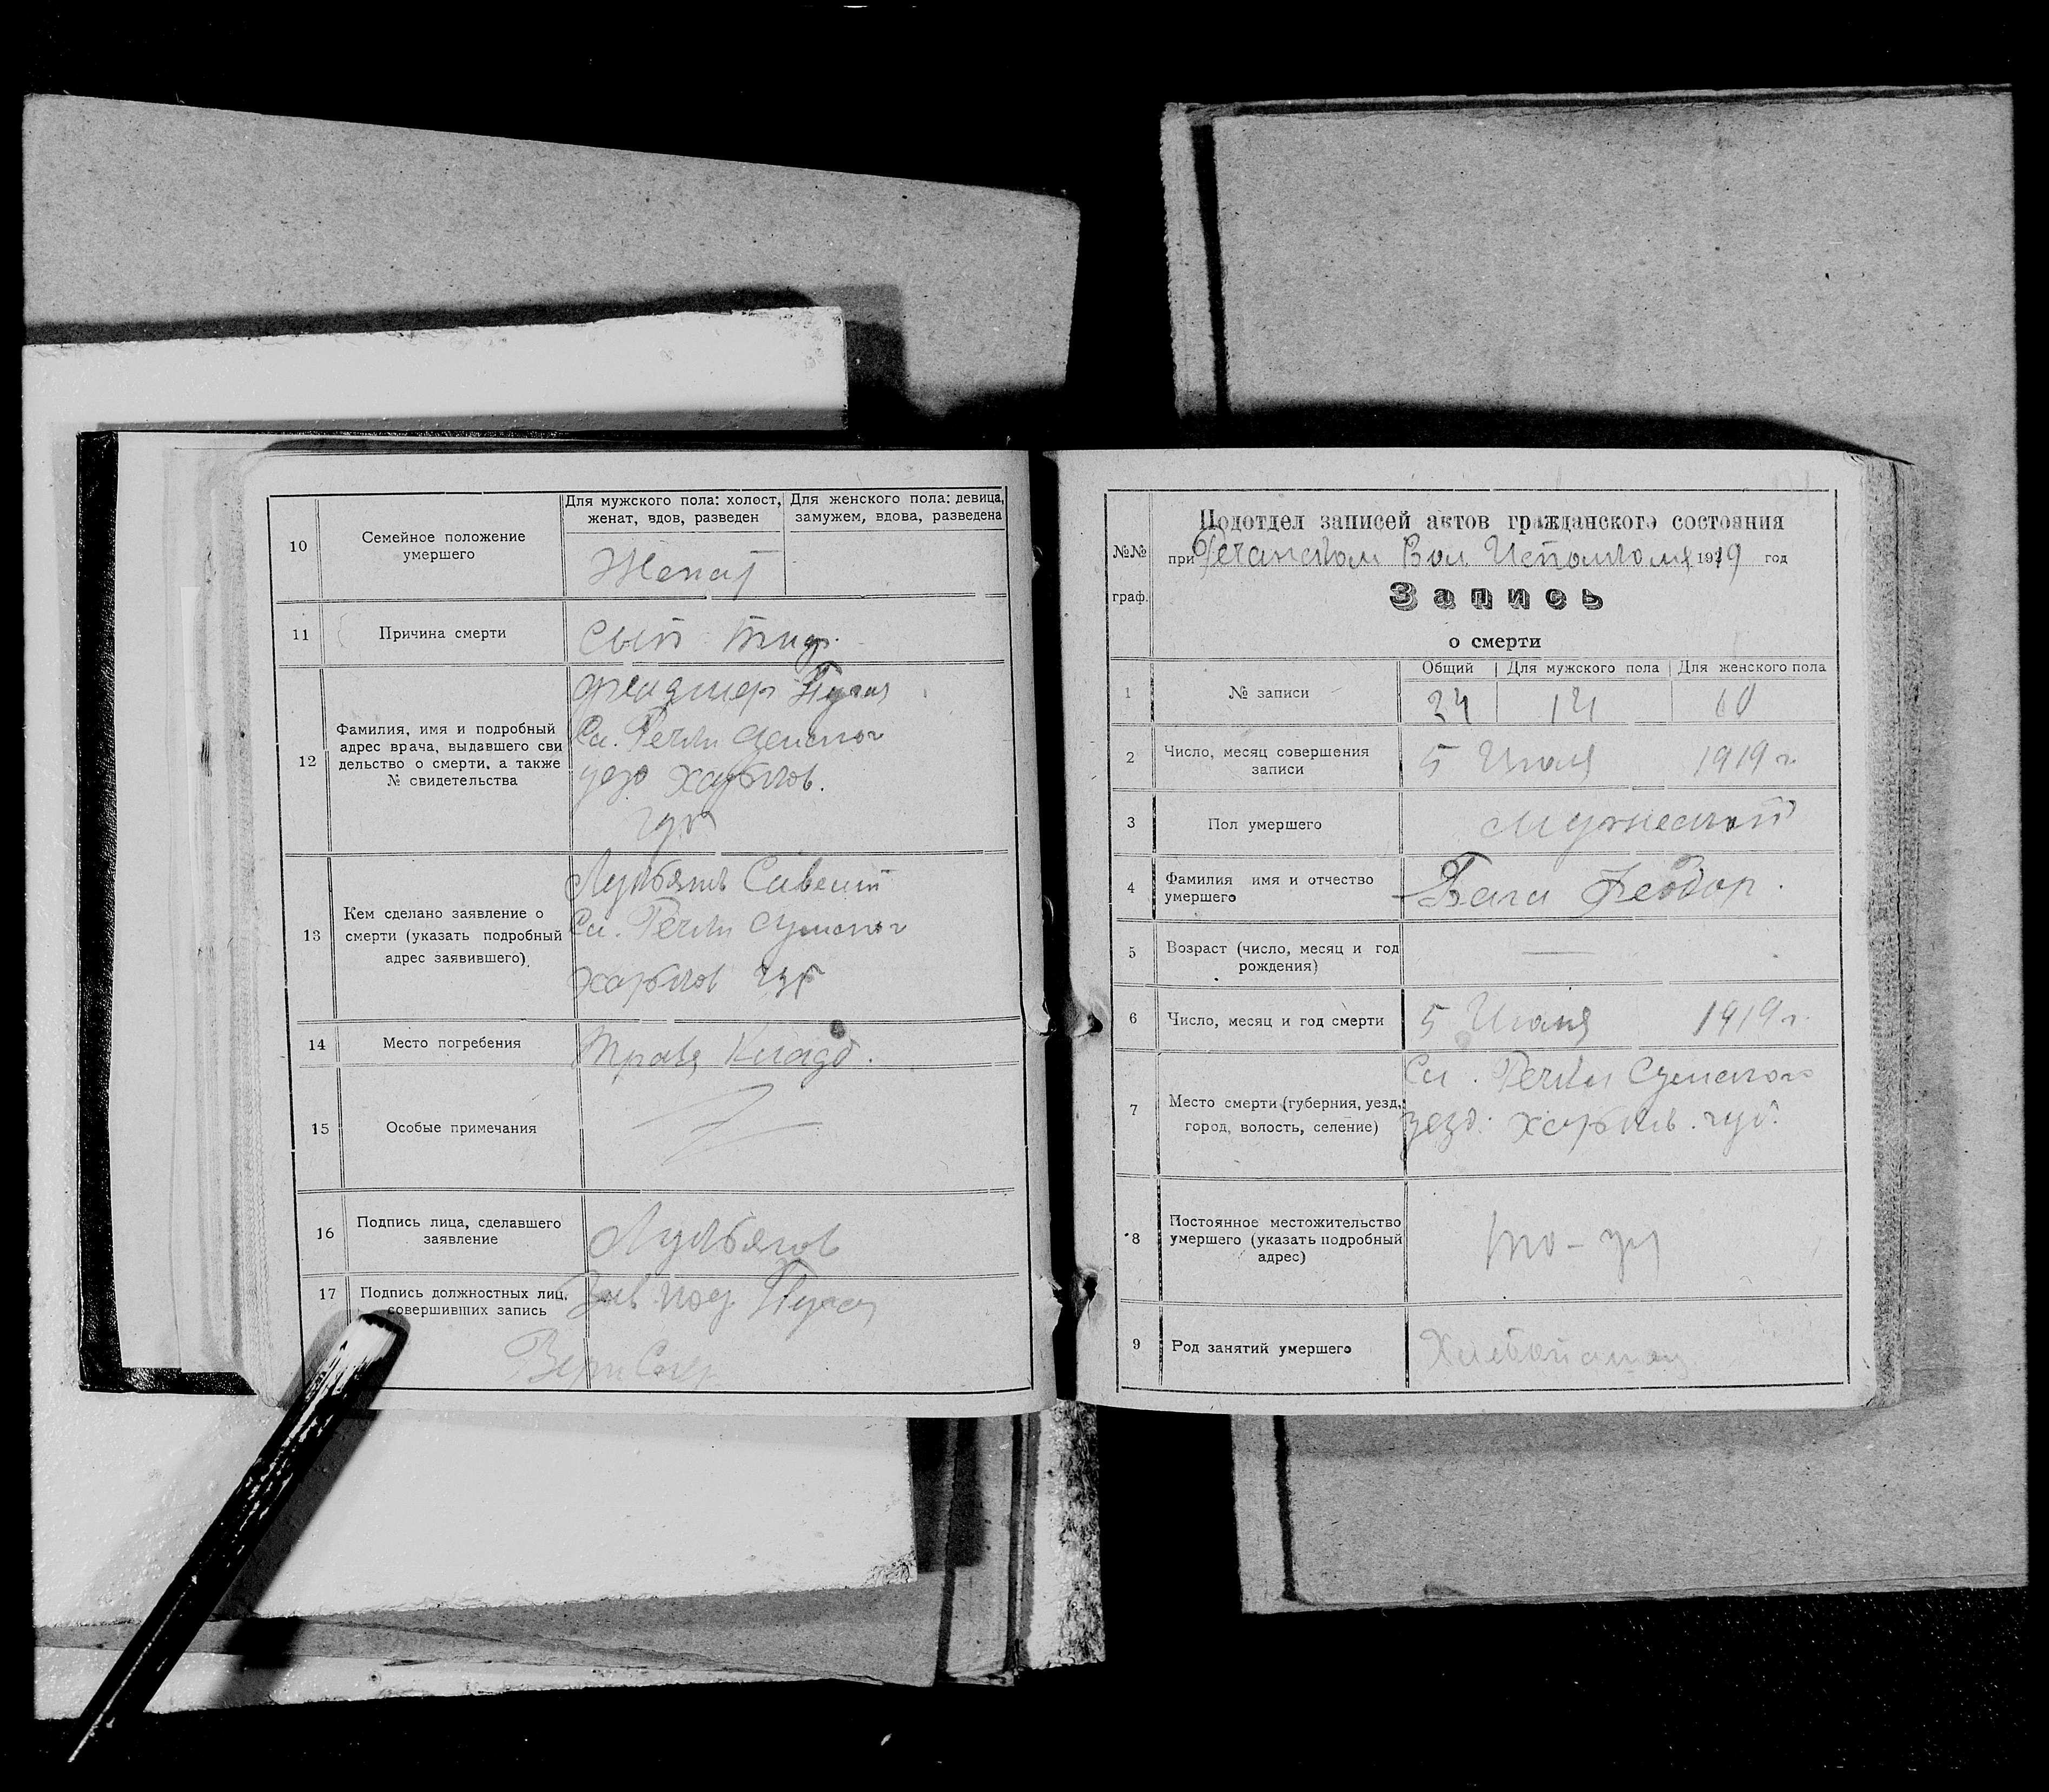 10
Семейное положение
умершего
Для мужского пола: холост,
женат, вдов, разведен
Для женского пола: девица,
замужем, вдова, разведена
Женат
11
Причина смерти
Сып. тиф.
12
Фамилия, имя и подробный
адрес врача, выдавшего сви
дельство о смерти, а также
№ свидетельства
Сл. Речки Сумског
уезд Харьков.
губ
13
Кем сделано заявление о
смерти (указать подробный
адрес заявившего)
Сл. Речки Сумског
Харьков губ
14
Место погребения
Прав. Кладб.
15
Особые примечания
16
Подпись лица, сделавшего
заявление
17
Подпись должностных лиц,
совершивших запись
Зав. под.
№№
граф.
Подотдел записей актов гражданского состояния
при Речанском Вол Исполкоме 1919 год
Запись
о смерти
1
№ записи
Общий
Для мужского пола
Для женского пола
24
14
10
2
Число, месяц совершения
записи
5 Июля 1919 г.
3
Пол умершего
Мужеский
4
Фамилия имя и отчество
умершего
Бага Феодор.
5
Возраст (число, месяц и год
рождения)
—
6
Число, месяц и год смерти
5 Июля 1919 г.
7
Место смерти (губерния, уезд,
город, волость, селение)
Сл. Речки Сумского
уезд. Харьков. губ.
8
Постоянное местожительство
умершего (указать подробный
адрес)
9
Род занятий умершего
Хлебопашец